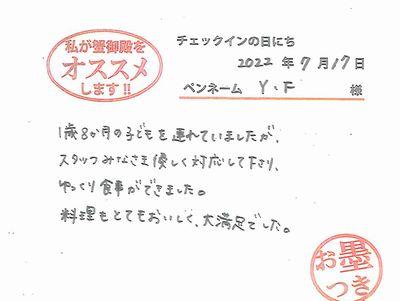 私が蟹御殿を
オススメ
します!!
チェックインの日にち
2022 年 7 月 17 日
ペンネーム Y・F 様
1歳8か月の子どもを連れていましたが、
スタッフみなさま優しく対応して下さり、
ゆっくり食事ができました。
料理もとてもおいしく、大満足でした。
お墨
つき